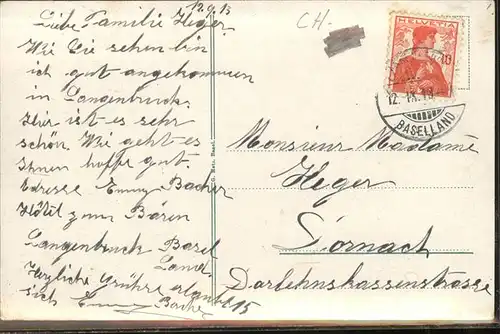 12.9.13
Liebe Familie Heger.
Wie Sie sehen bin
ich gut angekommen
in Langenbruck.
Hier ist es sehr
schön. Wie geht es
Ihnen hoffe gut.
Adresse Emmy Bacher
Hôtel zum Bären
Langenbruck Basel
Land
Herzliche Grühse
sich Emmy Bacher
CH.
HELVETIA
10
12. IX. 13
BASELLAND
Monsieur Madame
Heger
Lörnach
Darlehnskassenstrasse